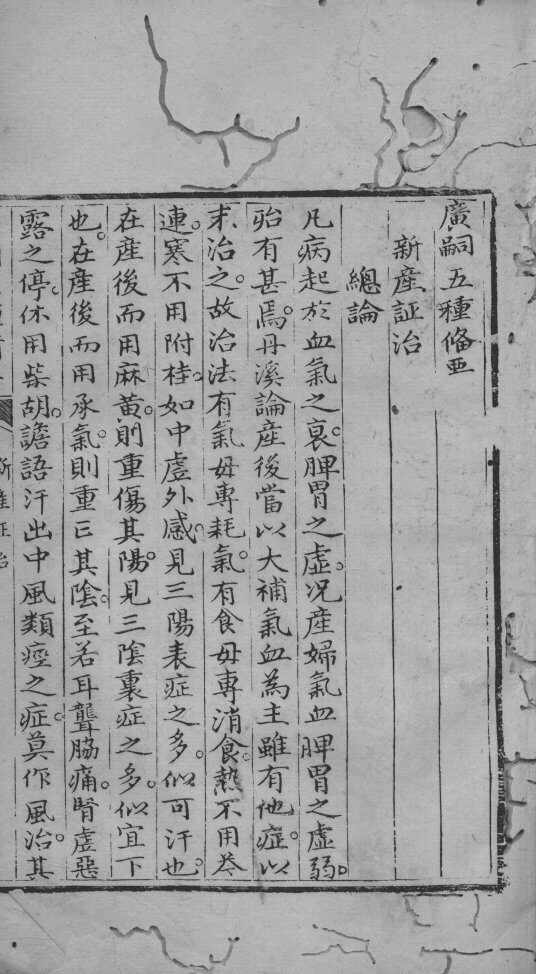 廣嗣五種俻要
新產証治
總論
凡病起於血氣之衰。脾胃之虛。况產婦氣血脾胃之虛弱。
殆有甚焉。丹溪論產後當以大補氣血為主雖有他症。以
末治之。故治法有氣毋專耗氣。有食毋專消食。熱不用苓
連。寒不用附桂。如中虛外感。見三陽表症之多。似可汗也。
在產後而用麻黃。則重傷其陽。見三陰裏症之多。似宜下
也。在產後而用承氣。則重亡其陰。至若耳聾脇痛。腎虛惡
露之停。休用柴胡。譫語汗出中風類痙之症。莫作風治。其
新產証治